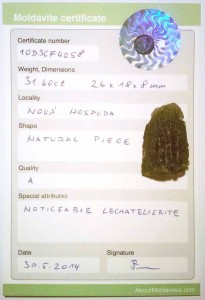 Moldavite certificate
Certificate number
10DSCF4058
Weight, Dimensions
31.60ct 26x18x8mm
Locality
NOVÁ HOSPODA
Shape
NATURAL PIECE
Quality
A
Special attributes
NOTICEABLE LECHATELIERITE
Date
Signature
30.5.2014
AboutMoldavites.com